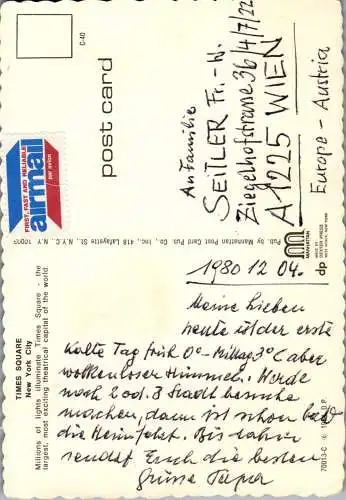 C-40
post card
FIRST, FAST AND RELIABLE
airmail
par avion
An Familie
SEITLER Fr.-W.
Ziegelhofstrasse 36/4/7/22
A 1225 WIEN
Europe - Austria
Pub. by Manhattan Post Card Pub. Co., Inc., 418 Lafayette St., N.Y.C., N.Y. 10003
MANHATTAN
MADE BY
DEXTER PRESS
WEST NYACK, NEW YORK
dp
TIMES SQUARE
New York City
Millions of lights illuminate Times Square - the
largest, most exciting theatrical capital of the world.
1980 12 04.
Meine Lieben
heute ist der erste
kalte Tag früh 0° - Mittag 3°C aber
wolkenloser Himmel. Werde
noch 2 od. 3 Stadtbesuche
machen, dann ist schon bald
die Heimfahrt. Bis dahin
sendet Euch die besten
Grüsse Papa
70013-C